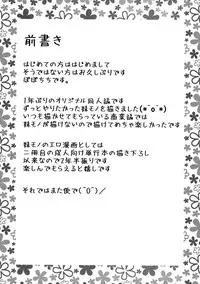 前書き
はじめての方ははじめまして
そうではない方はお久しぶりです
ぽぽちちです。
1年ぶりのオリジナル同人誌です
ずっとやりたかった妹モノを描きました(*^o^*)
いつも描かせてもらっている商業誌では
妹モノが描けないので描けてめちゃ楽しかったです
妹モノのエロ漫画としては
二冊目の成人向け単行本の描き下ろし
以来なので2年半振りです
楽しんでもらえると嬉しいです
それではまた後で(^O^)/